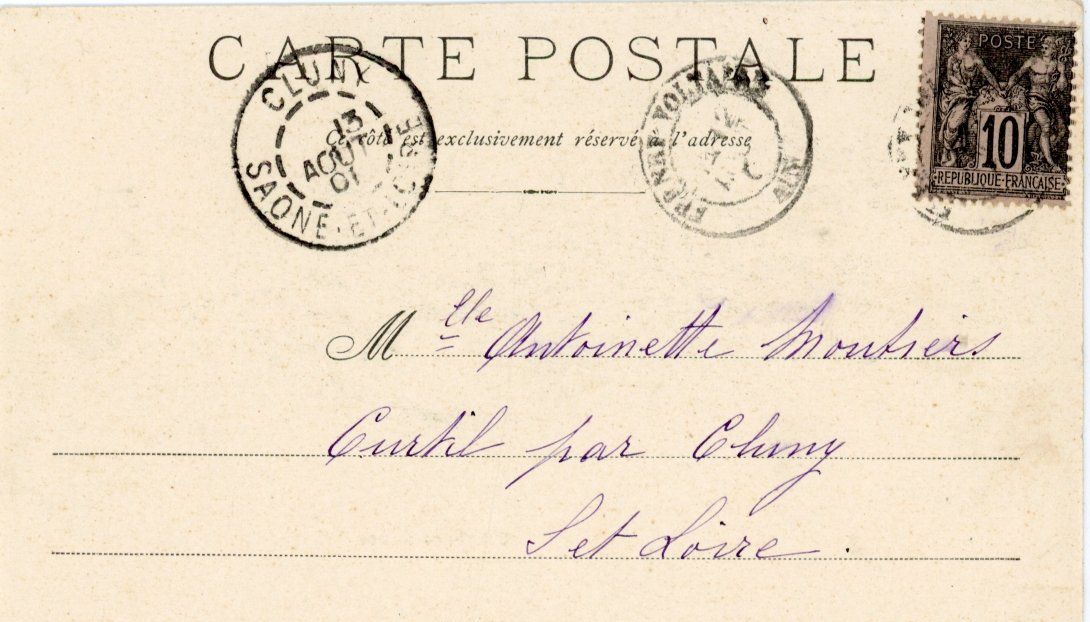 CARTE POSTALE
CLUNY
13
AOUT
01
SAONE-ET-LOIRE
Ce côté est exclusivement réservé à l'adresse
FERNEY-VOLTAIRE
AIN
POSTES
10
REPUBLIQUE FRANÇAISE
Mlle Antoinette Moutiers
Curtil par Cluny
S et Loire.